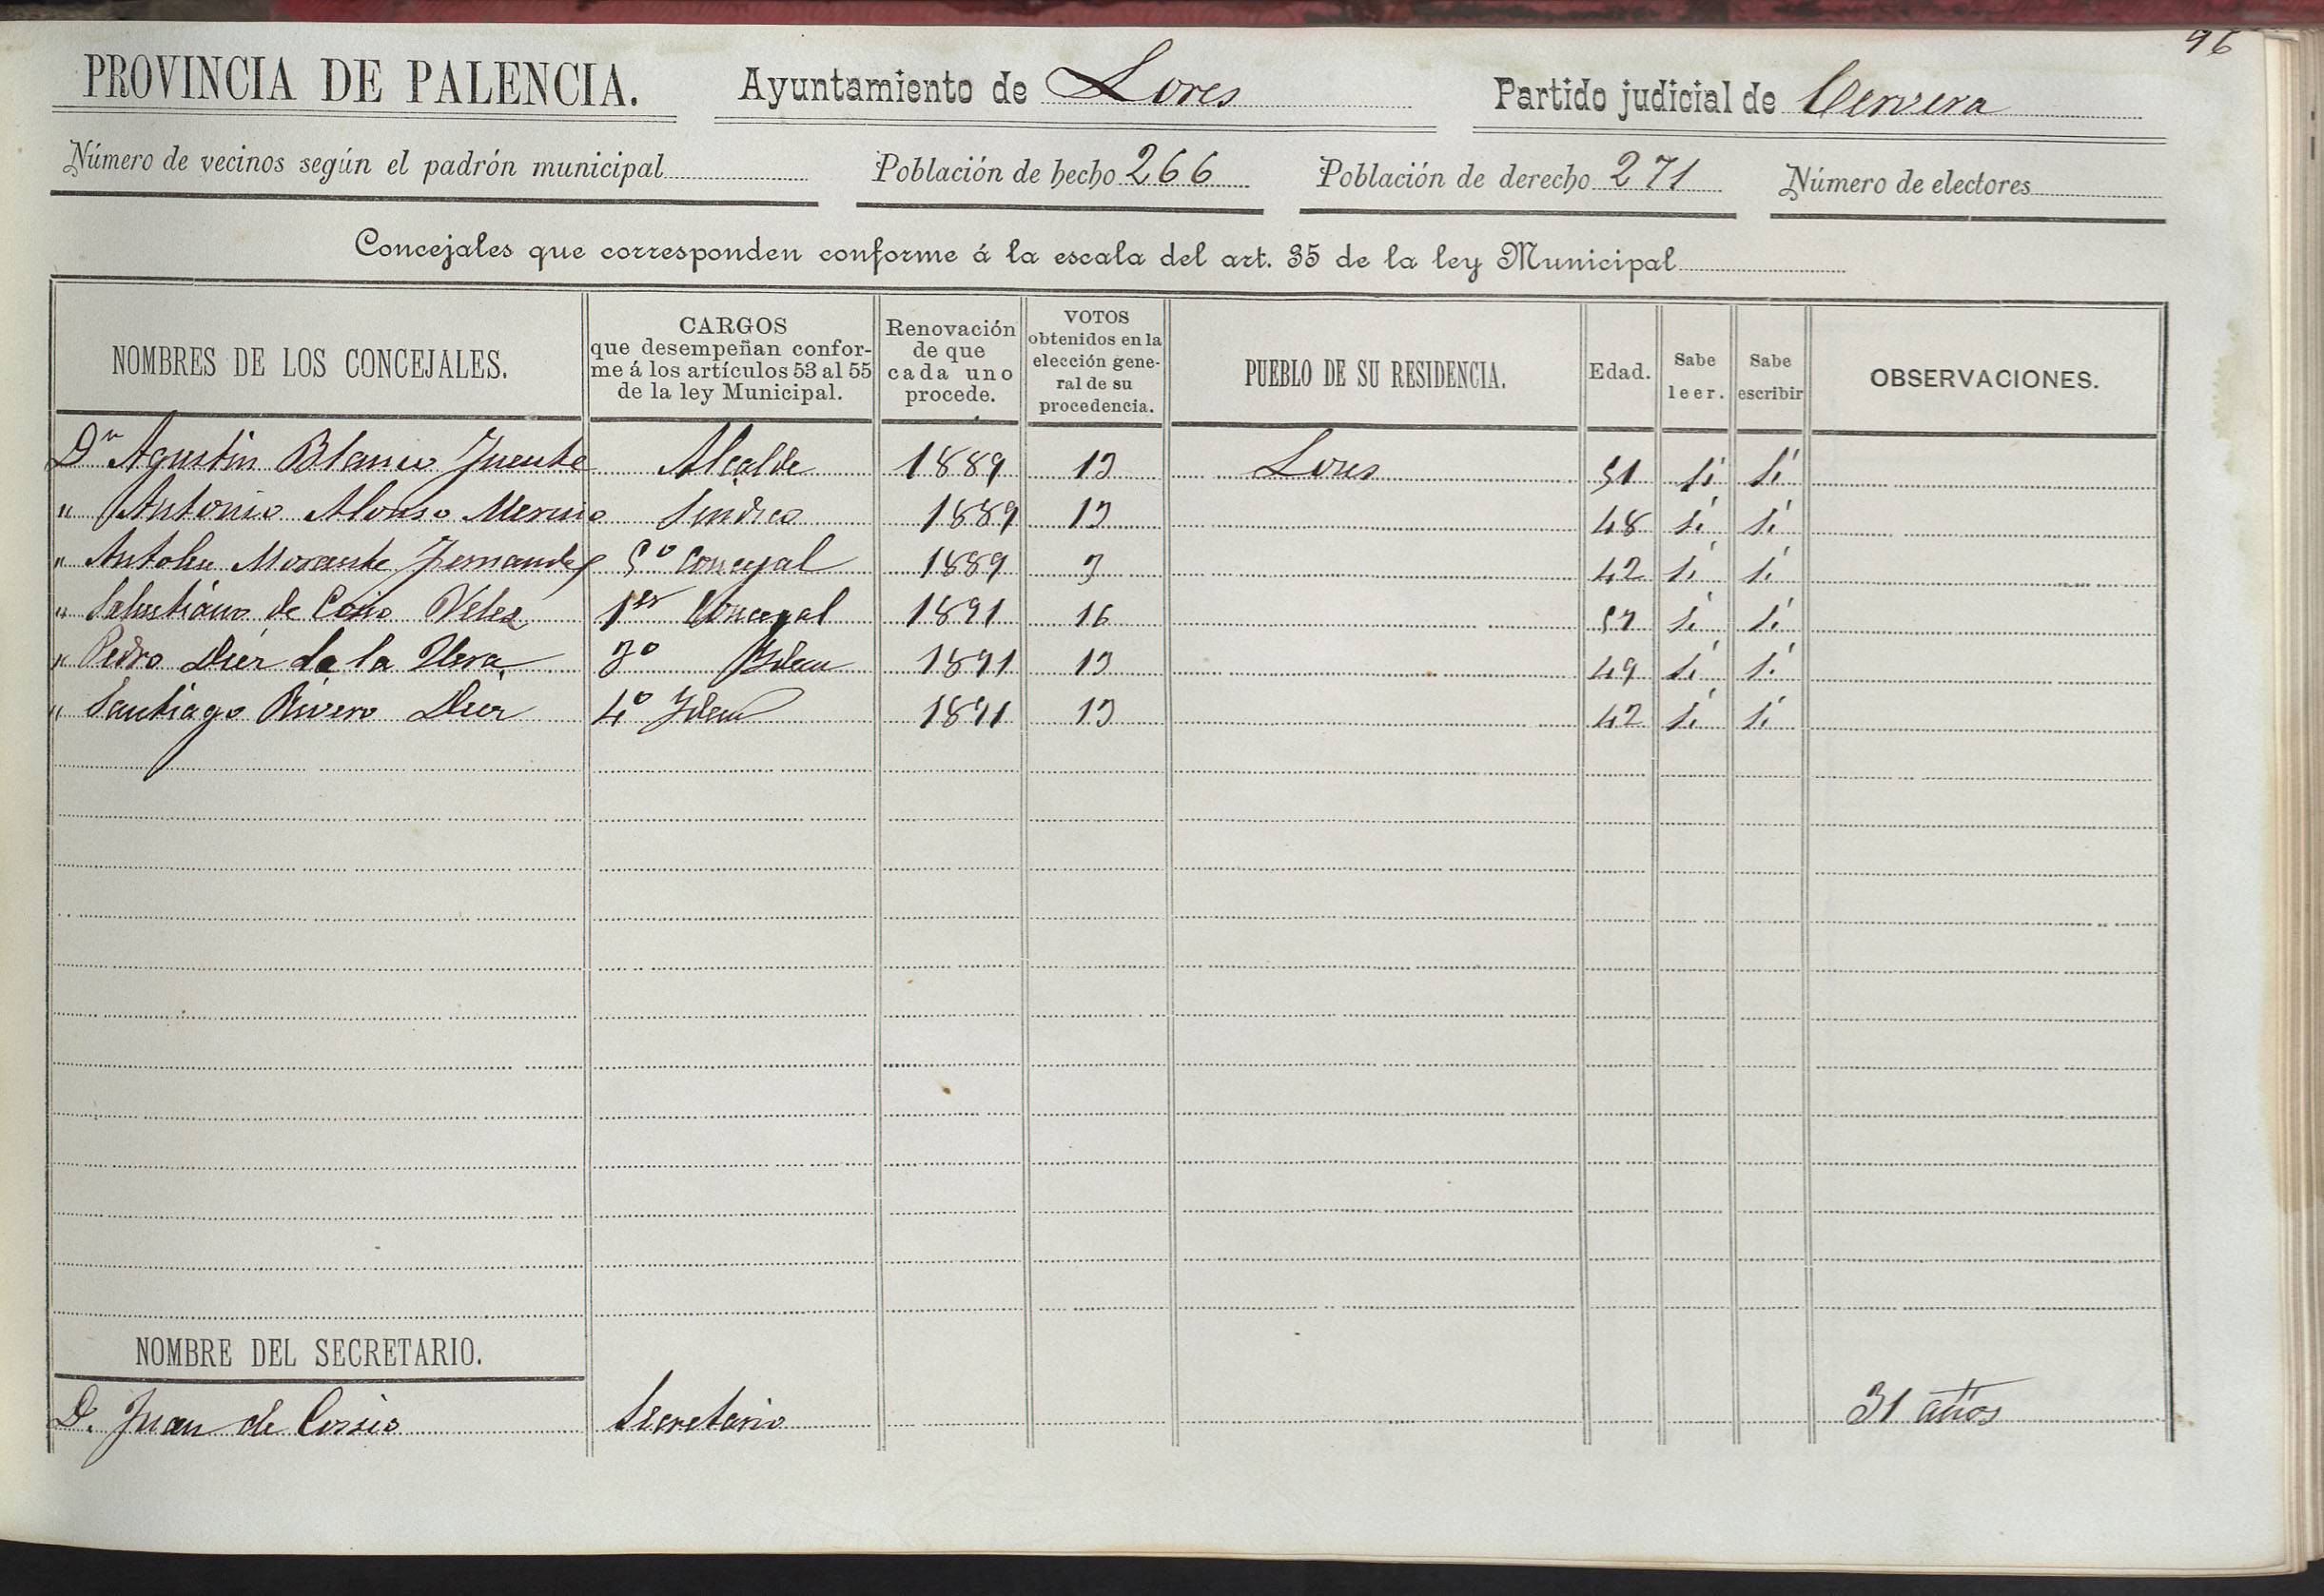 96
PROVINCIA DE PALENCIA. Ayuntamiento de Lores Partido judicial de Cervera
Número de vecinos según el padrón municipal Población de hecho 266 Población de derecho 271 Número de electores
Concejales que corresponden conforme á la escala del art. 35 de la ley Municipal
NOMBRES DE LOS CONCEJALES.
CARGOS
que desempeñan confor-
me á los artículos 53 al 55
de la ley Municipal.
Renovación
de que
cada uno
procede.
VOTOS
obtenidos en la
elección gene-
ral de su
procedencia.
PUEBLO DE SU RESIDENCIA.
Edad.
Sabe
leer.
Sabe
escribir
OBSERVACIONES.
Dn Agustin Blanco Fuente Alcalde 1889 13 Lores 51 Si Si
" Antonio Alonso Merino Sindico 1889 13 48 Si Si
" Antolin Morante Fernandez 5º Concejal 1889 3 42 Si Si
" Salustiano de Cosio Velez 1er Concejal 1891 16 57 Si Si
" Pedro Diez de la Hera 3º Idem 1891 13 49 Si Si
" Santiago Rivero Diez 4º Idem 1891 13 42 Si Si
NOMBRE DEL SECRETARIO.
D. Juan de Cossio Secretario 31 años